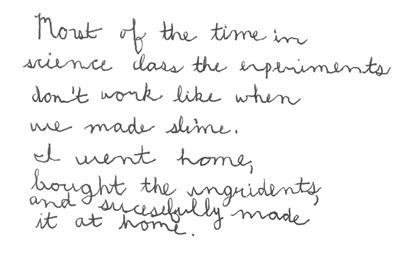 Most of the time in
science class the experiments
don't work like when
we made slime.
I went home,
bought the ingridents,
and sucesfully made
it at home.